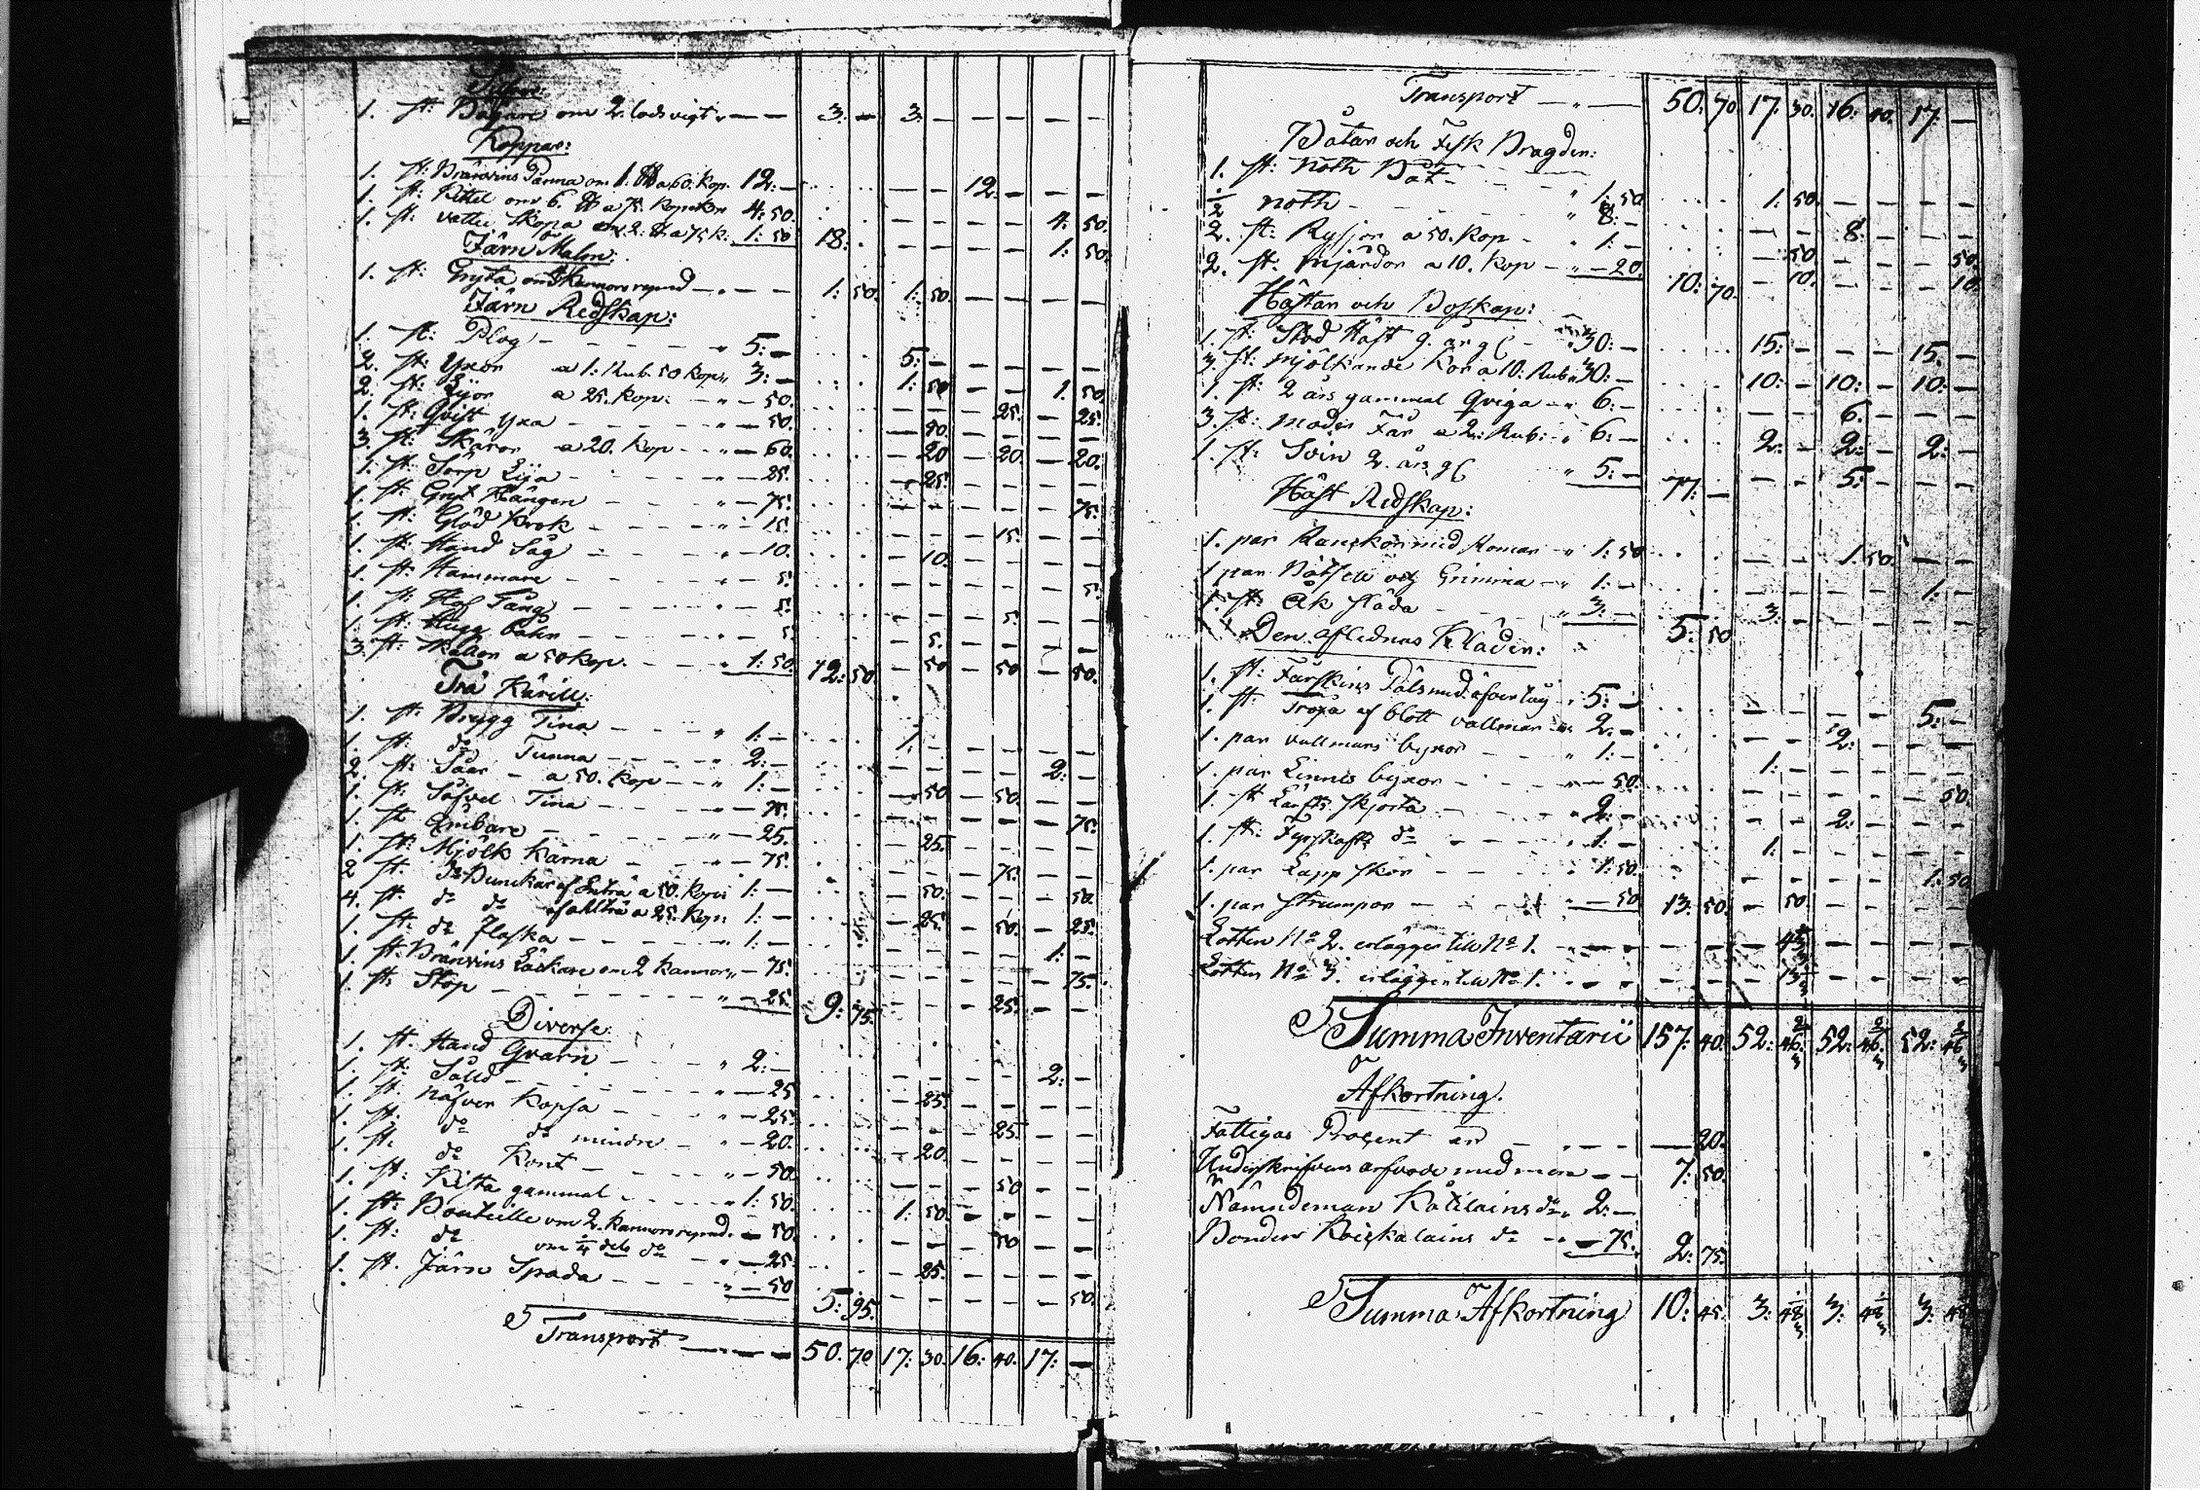 Silfver:
1. st: Bägare om 2. lods vigt " — — 3: — 3: — — — — —
Koppar:
1. st: Bränvins Panna om 1. ℔ a 60. Kop. 12: — — — 12: — — —
1. st: Kittel om 6. ℔ a 75. Kopeker 4: 50. — — — — 4: 50.
1. st: Skopa om 2. ℔ a 75 k. 1: 50 18: — — — — 1: 50.
Järn Malm:
1. st: Gryta om Kannors rymd — " — — 1: 50. 1: 50. — — — —
Järn Redskap:
1. st: Plog — " 5: — 5: — — — — —
2. st: Yxor a 1: Rub. 50 Kop " 3: — 1: 50 — — 1. 50.
2. st: Lijor a 25. Kop: " — 50. — — — 25. — 25.
1. st: Qvist Yxa — " — 50. — 50. — — — —
3. st: Skäror a 20. Kop — " — 60. — 20 — 20. — 20.
1. st: Sörp Lija — " — 25. — 25. — — — —
1. st: Gryt Hängen — " — 75. — — — — — 75.
1. st: Glöd Krok — " — 15. — — — 15. — —
1. st: Hand Såg — " — 10. — 10. — — — —
1. st: Hammare — " — 5. — — — — — 5.
1. st: Hof Tång — " — 5. — — — 5. — —
1. st: — " — 5. — 5. — — — —
3. st: a 50 Kop. — " 1: 50. 12: 50. — 50 — 50 — 50.
Trä Kärill:
1. st: Brygg Tina — " 1: — 1: — — — — —
1. st: do Tunna — " 2: — — — — — 2: —
2. st: Såar — a 50. Kop — " 1: — — 50 — 50. — —
1. st: Tina — " — 75. — — — — — 75.
1. st Ämbare — " — 25. — 25. — — — —
1. st: Mjölk Kärna — " — 75. — — — 75. — —
2 st. do Bunckar af a 50. Kop: 1: — — 50. — — — 50.
4. st. do do a 25. Kop: 1: — — 25. — 50. — 25.
1. st: do flaska — " 1: — — — — — 1: —
1. st: Bränvins Läckare om 2 Kannor " — 75. — — — — — 75.
1. st Stop — " — 25. 9: 75. — — — 25. — —
Diverse:
1. st. Hand Qvarn — " 2: — — — — — 2: —
1. st: Såld — " — 25 — 25. — — — —
1. st. Näfver Kopsa — " — 25. — — — 25. — —
1. st. do do mindre — " — 20. — 20. — — — —
1. st. do Kont — " — 50. — — — 50 — —
1. st: Kista gammal — " 1: 50. 1: 50. — — — —
1. st: Bouteille om 2. Kannors rymd. — 50. — — — 50 — —
1. st: do om ¼ dels do — " — 25. — 25. — — — —
1. st. Järn Spada — " — 50 5: 95. — — — — — 50.
Transport — — — 50. 70 17: 30. 16: 40. 17: —
Transport — " — 50. 70. 17. 30. 16: 40. 17: —
Båtar och Fisk Bragder:
1. st: Noth Båt — " 1: 50 1: 50. — — — —
½ Noth — " 8: — — — 8: — — —
2. st: Rysjor a 50. Kop — " 1: — — 50 — — — 50.
2. st. Mjärdor a 10. Kop — " — 20. 10: 70. — 10. — — — 10.
Hästar och Boskap:
1. st: Stod Häst 9. år gl — " 30: — 15: — — — 15: —
3. st: Mjölkande Kor a 10: Rub " 30: — 10: — 10: — 10: —
1. st: 2 års gammal Qviga — " 6: — — — 6. — — —
3. st: Moder Får a 2: Rub: " 6: — 2: — 2: — 2: —
1. st: Svin 2. års gl " 5: — 77: — — — 5: — — —
Häst Redskap:
1. par Rankor med Komar — " 1: 50 — — 1. 50. — —
1 par och Grimma — " 1: — — — — — 1: —
1. st: Åk släda — " 3: — 5: 50 3: — — — — —
Den aflednas Kläder:
1. st: Fårskins Päls med öfvertyg " 5: — — — — — 5: —
1. st: Tröja af blott vallmar " 2: — — — 2: — — —
1. par vallmars byxor — " 1: — 1: — — — — —
1. par Linnes byxor — " — 50. — — — — — 50.
1. st Lärfts skjorta — " 2: — — — 2: — — —
1. st: Fyrskafts do — " 1: — 1: — — — — —
1. par Lapp skor — " 1: 50. — — — — 1: 50
1. par strumpor — " — 50 13: 50. — 50. — — — —
Lotten No 2. erlägger till No 1. — — — — —
Lotten No 3. erlägger till No 1. — — — — —
Summa Inventarii 157: 40. 52: 46⅔ 52: 46⅔ 52: 46⅔
Afkortning.
Fattigas Procent är — — 20.
Underskrifvens arfvode med mera — 7: 50.
Nämndeman do " 2: —
Bonden do — " — 75. 2: 75.
Summa Afkortning 10: 45. 3: 48⅓ 3: 48⅓ 3: 48⅓